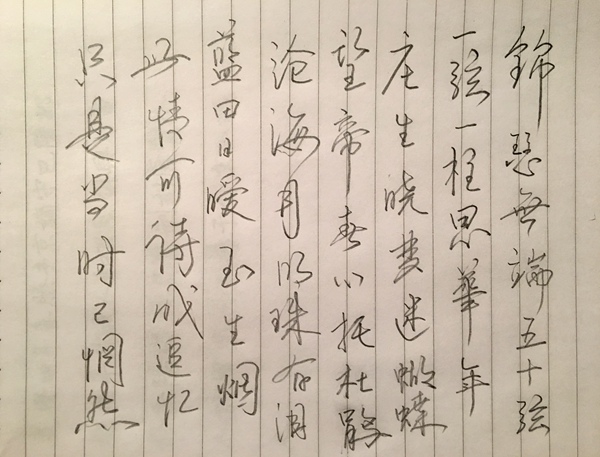 錦瑟無端五十弦
一弦一柱思華年
庄生晓梦迷蝴蝶
望帝春心托杜鹃
沧海月明珠有泪
蓝田日暖玉生烟
此情可待成追忆
只是当时已惘然